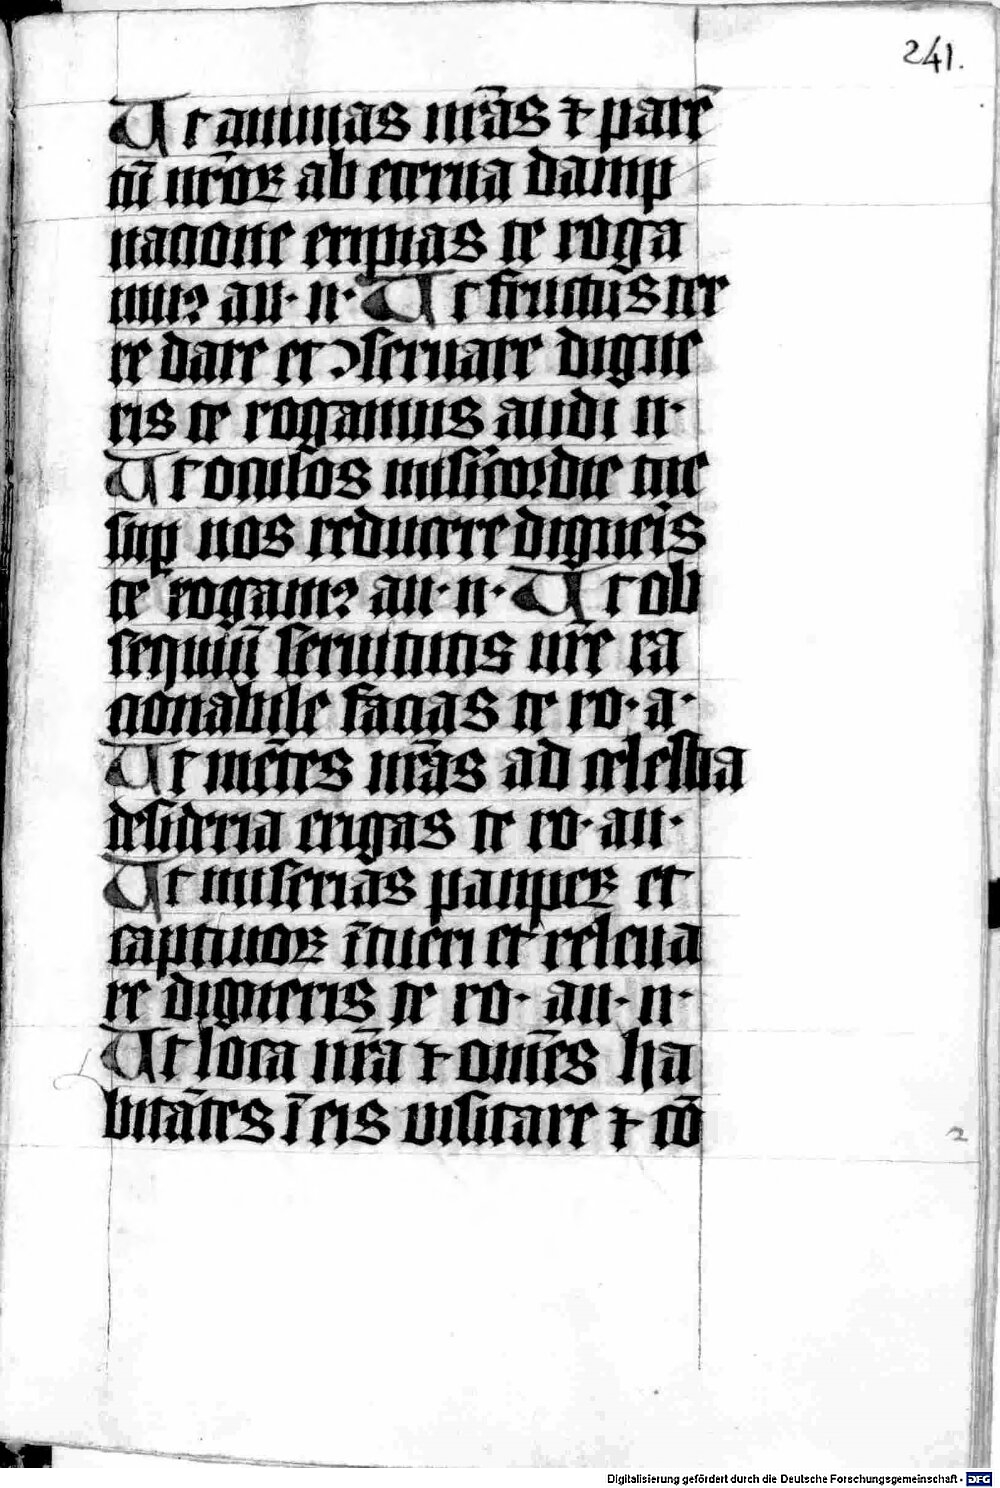 241.
Ut animas nr̄as ⁊ parē
tū nr̄oꝝ ab eterna damp
nacione eripias te roga
mꝰ au· n· Ut fructus ter
re dare et ꝯseruare digne
ris te rogamus audi n·
Ut oculos misicordie tue
suꝑ nos reducere digneris
te rogamꝰ au· n· Ut ob
sequiū seruitutis nr̄e ra
cionabile facias te ro· a·
Ut mētes nr̄as ad celestia
desideria erigas te ro· au·
Ut miserias pauperꝝ et
captiuoꝝ ītueri et releua
re digneris te ro· au· n·
Ut loca nr̄a ⁊ omēs ha
bitātes ī eis uisitare ⁊ cō
2
Digitalisierung gefördert durch die Deutsche Forschungsgemeinschaft - DFG